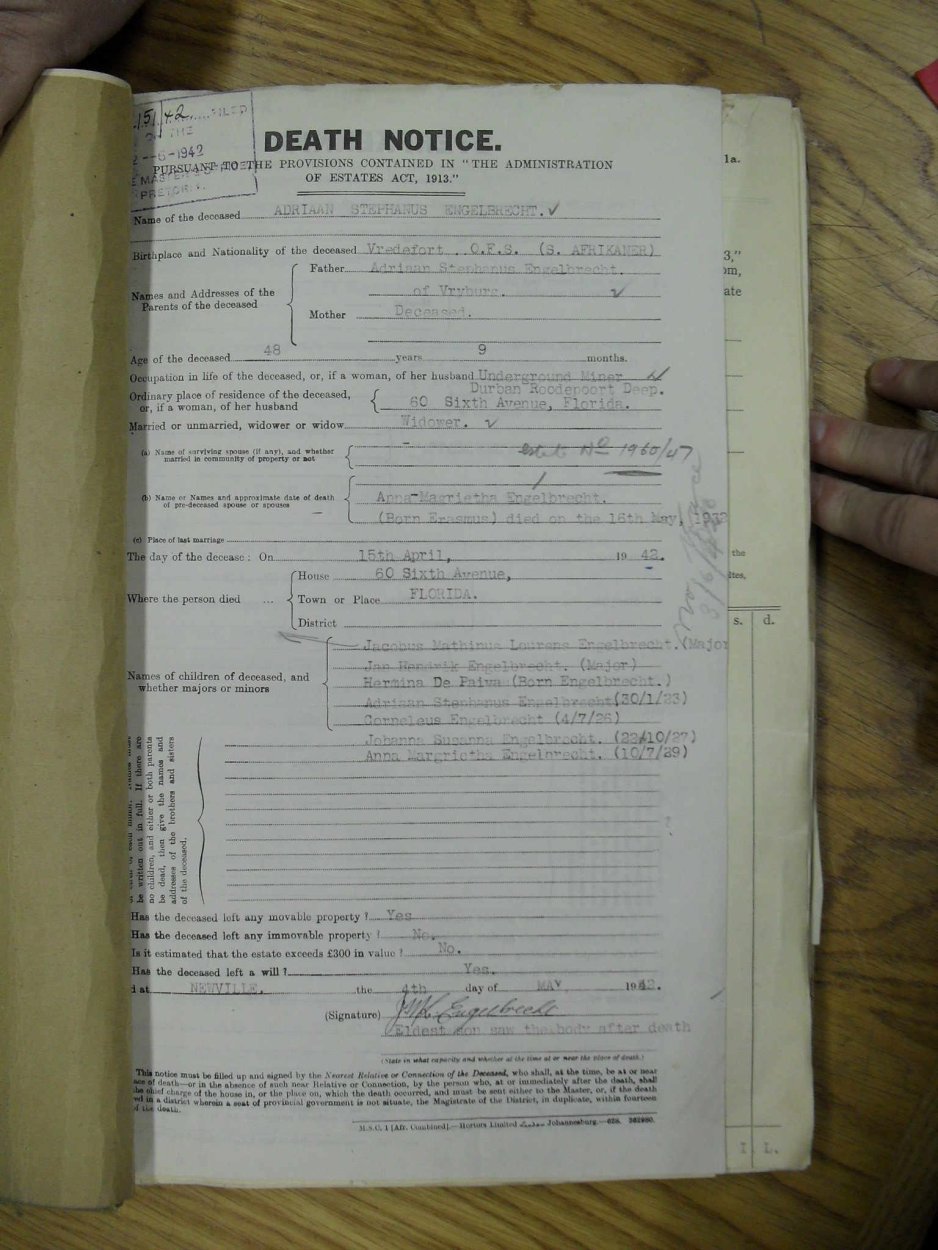 151/42 FILED
THE
-6-1942
MASTER
PRETORIA.
DEATH NOTICE.
PURSUANT TO THE PROVISIONS CONTAINED IN "THE ADMINISTRATION
OF ESTATES ACT, 1913."
Name of the deceased ADRIAAN STEPHANUS ENGELBRECHT. ✓
Birthplace and Nationality of the deceased Vredefort O.F.S. (S. AFRIKANER)
Names and Addresses of the Parents of the deceased
Father Adriaan Stephanus Engelbrecht.
of Vryburg. ✓
Mother Deceased.
Age of the deceased 48 years 9 months.
Occupation in life of the deceased, or, if a woman, of her husband Underground Miner
Durban Roodepoort Deep.
Ordinary place of residence of the deceased, or, if a woman, of her husband
60 Sixth Avenue, Florida.
Married or unmarried, widower or widow Widower. ✓
(a) Name of surviving spouse (if any), and whether married in community of property or not
estate No 1960/47
(b) Name or Names and approximate date of death of pre-deceased spouse or spouses
Anna Magrietha Engelbrecht.
(Born Erasmus) died on the 16th May,
(c) Place of last marriage
The day of the decease: On 15th April, 19 42.
Where the person died ...
House 60 Sixth Avenue,
Town or Place FLORIDA.
District
Names of children of deceased, and whether majors or minors
Jacobus Mathinus Lourens Engelbrecht. (Major
Jan Hendrik Engelbrecht. (Major)
Hermina De Paiva (Born Engelbrecht.)
Adriaan Stephanus Engelbrecht (30/1/23)
Corneleus Engelbrecht (4/7/26)
Johanna Susanna Engelbrecht. (22/10/27)
Anna Margrietha Engelbrecht. (10/7/29)
be written out in full. If there are
no children, and either or both parents
be dead, then give the names and
addresses of the brothers and sisters
of the deceased.
Has the deceased left any movable property? Yes
Has the deceased left any immovable property? No.
Is it estimated that the estate exceeds £300 in value? No.
Has the deceased left a will? Yes.
d at NEWVILLE. the 4th day of MAY 1942.
(Signature) JML Engelbrecht
Eldest son saw the body after death
(State in what capacity and whether at the time at or near the place of death.)
This notice must be filled up and signed by the Nearest Relative or Connection of the Deceased, who shall, at the time, be at or near
ace of death—or in the absence of such near Relative or Connection, by the person who, at or immediately after the death, shall
the chief charge of the house in, or the place on, which the death occurred, and must be sent either to the Master, or, if the death
ed in a district wherein a seat of provincial government is not situate, the Magistrate of the District, in duplicate, within fourteen
of the death.
M.S.C. 1 [Afr. Combined].—Hortors Limited Johannesburg.
1a.
3,"
om,
ate
the
ites,
s. d.
I. L.